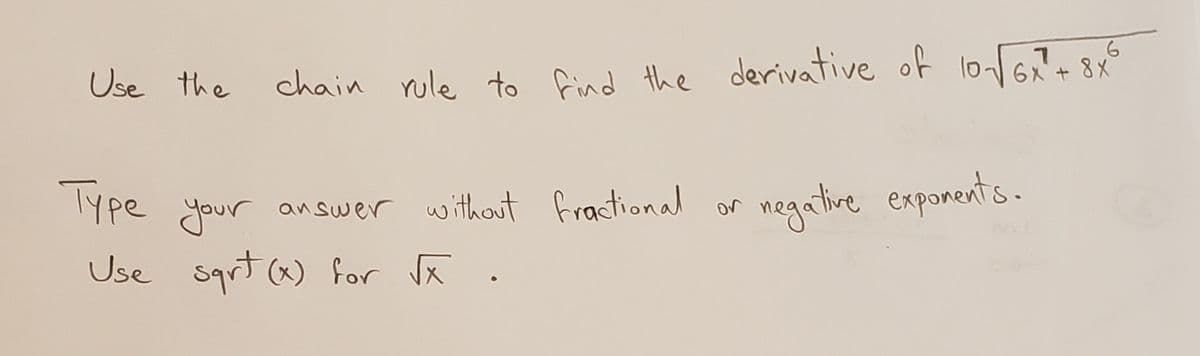 Use the chain rule to find the derivative of 10√(6x⁷ + 8x⁶)
Type your answer without fractional or negative exponents.
Use sqrt(x) for √x .